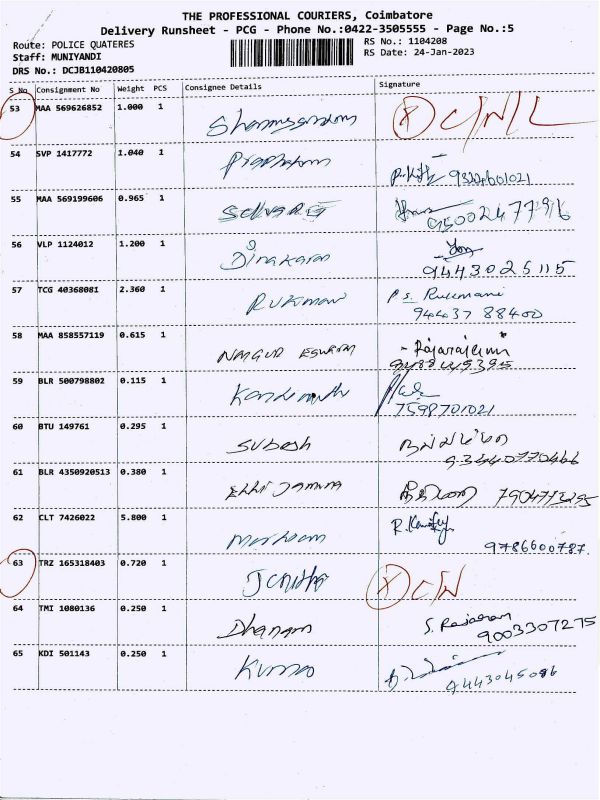 THE PROFESSIONAL COURIERS, Coimbatore
Delivery Runsheet - PCG - Phone No.:0422-3505555 - Page No.:5
Route: POLICE QUATERES
RS No.: 1104208
Staff: MUNIYANDI
RS Date: 24-Jan-2023
DRS No.: DCJB110420805
S No Consignment No Weight PCS Consignee Details Signature
53 MAA 569626852 1.000 1 C/N/L
54 SVP 1417772 1.040 1 Prabhakaran
55 MAA 569199606 0.965 1 Selvaraj
9500247796
56 VLP 1124012 1.200 1 Dinakaran
9443025115
57 TCG 40368081 2.360 1 Rukmani P.S. Rukmani
94437 88400
58 MAA 858557119 0.615 1 NAAGUR ESWARAN Rajarajeswari
59 BLR 500798802 0.115 1
7598701021
60 BTU 149761 0.295 1 Subash
61 BLR 4350920513 0.380 1 7904773295
62 CLT 7426022 5.800 1
9786600787
63 TRZ 165318403 0.720 1 C/N
64 TMI 1080136 0.250 1 Dhanam S. Rajaram
9003307275
65 KDI 501143 0.250 1 Kumar
9443045086